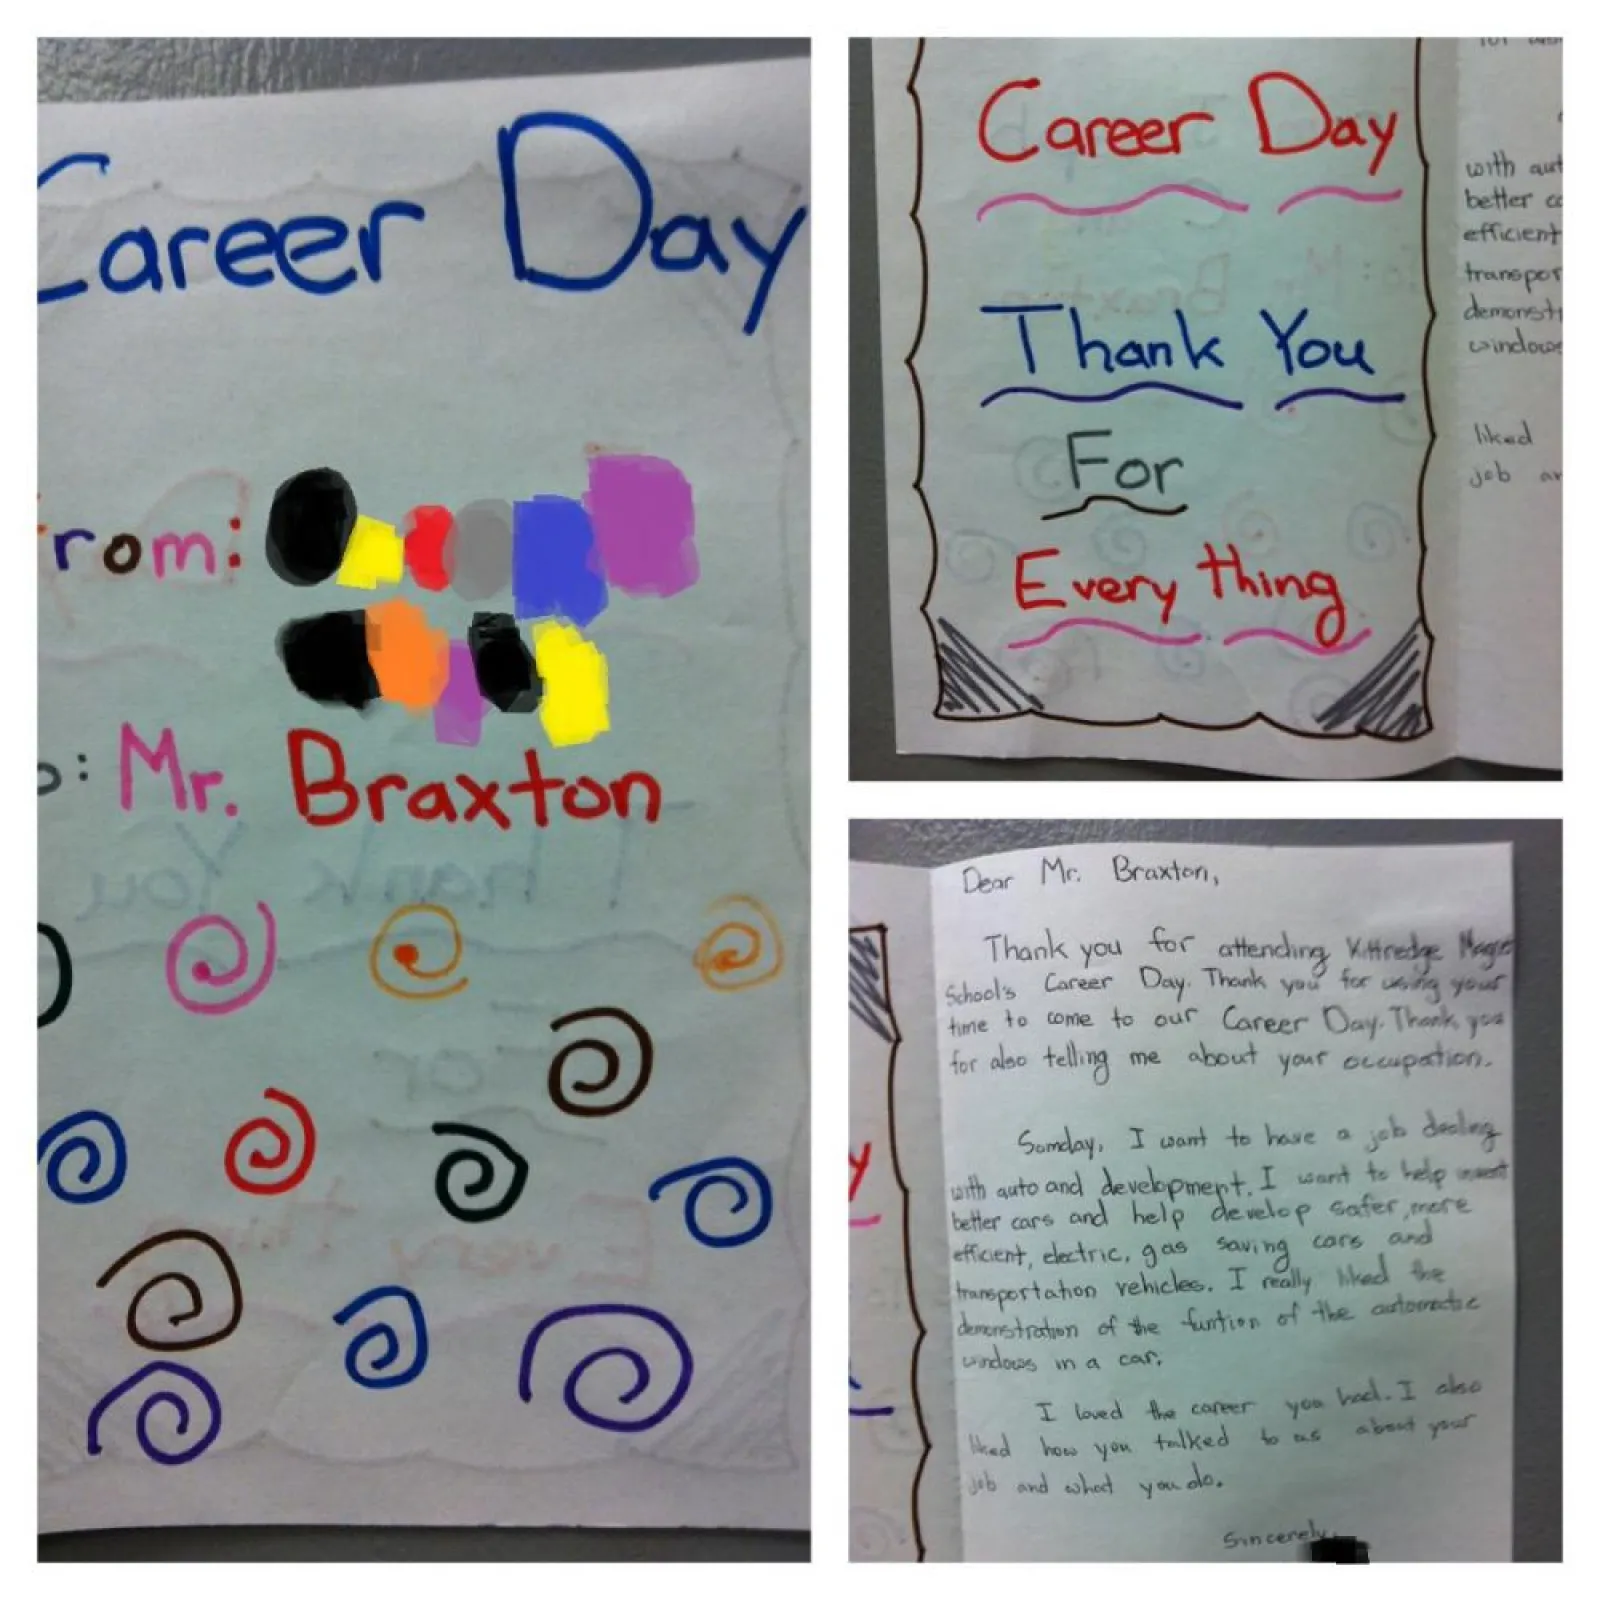 Career Day
rom:
o: Mr. Braxton
Career Day
Thank You
For
Every thing
with aut
better co
efficient
transpor
demonstr
windows
liked
job an
Dear Mr. Braxton,
Thank you for attending Kittredge Magn
School's Career Day. Thank you for using your
time to come to our Career Day. Thank you
for also telling me about your occupation.
Somday, I want to have a job dealing
with auto and development. I want to help invent
better cars and help develop safer, more
efficient, electric, gas saving cars and
transportation vehicles. I really liked the
demonstration of the funtion of the automatic
windows in a car.
I loved the career you had. I also
liked how you talked to us about your
job and what you do.
Sincerely,